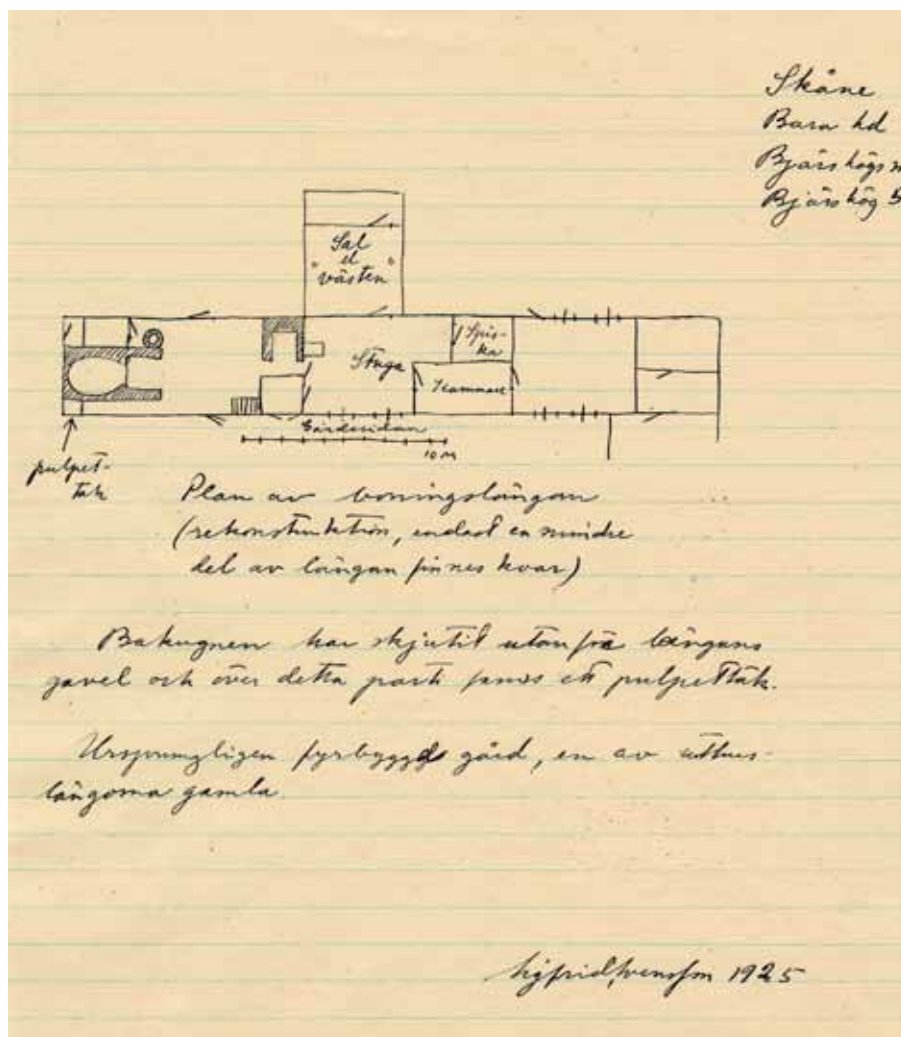 Skåne
Bara hd
Bjärshögs
Bjärshög 5
Sal
el
"västen"
Spis-
ka
Stuga
Kammare
Gårdssidan
10 m
pulpet-
tak
Plan av boningslängan
(rekonstruktion, endast en mindre
del av längan finnes kvar)
Bakugnen har skjutit utanför längans
gavel och över detta parti fanns ett pulpettak.
Ursprungligen fyrbyggd gård, en av uthus-
längorna gamla.
Sigfrid Svensson 1925